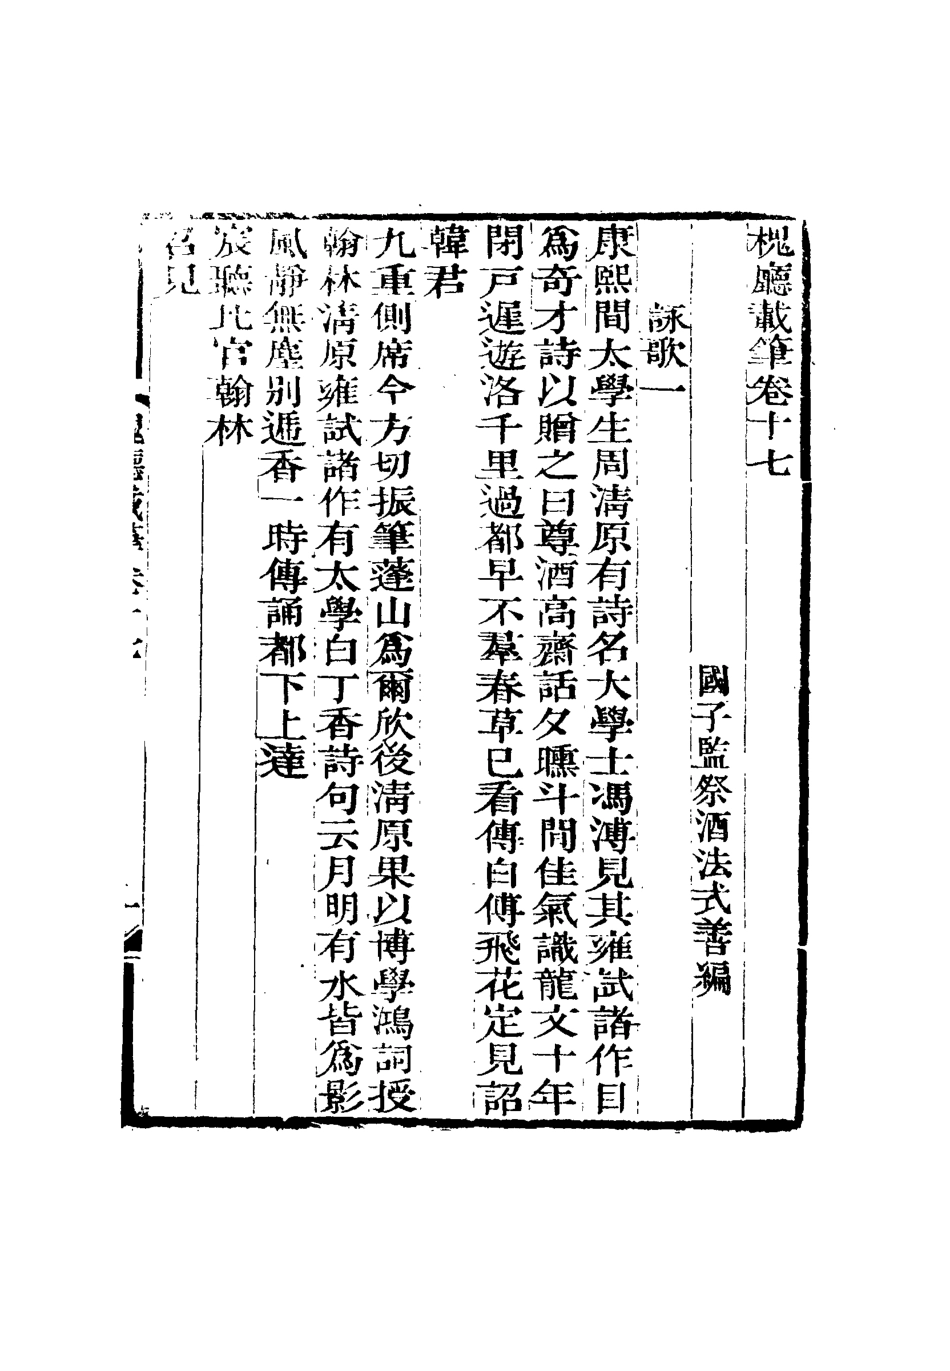 槐廳載筆卷十七
國子監祭酒法式善編
詠歌一
康熙間太學生周淸原有詩名大學士馮溥見其雍試諸作目
爲奇才詩以贈之曰尊酒高齋話夕曛斗間佳氣識龍文十年
閉戸遲遊洛千里過都早不羣春草已看傳白傅飛花定見詔
韓君
九重側席今方切振筆蓬山爲爾欣後淸原果以博學鴻詞授
翰林淸原雍試諸作有太學白丁香詩句云月明有水皆爲影
風靜無塵别遞香一時傳誦都下上達
宸聽比官翰林
召見
槐廳載筆 卷十七 一